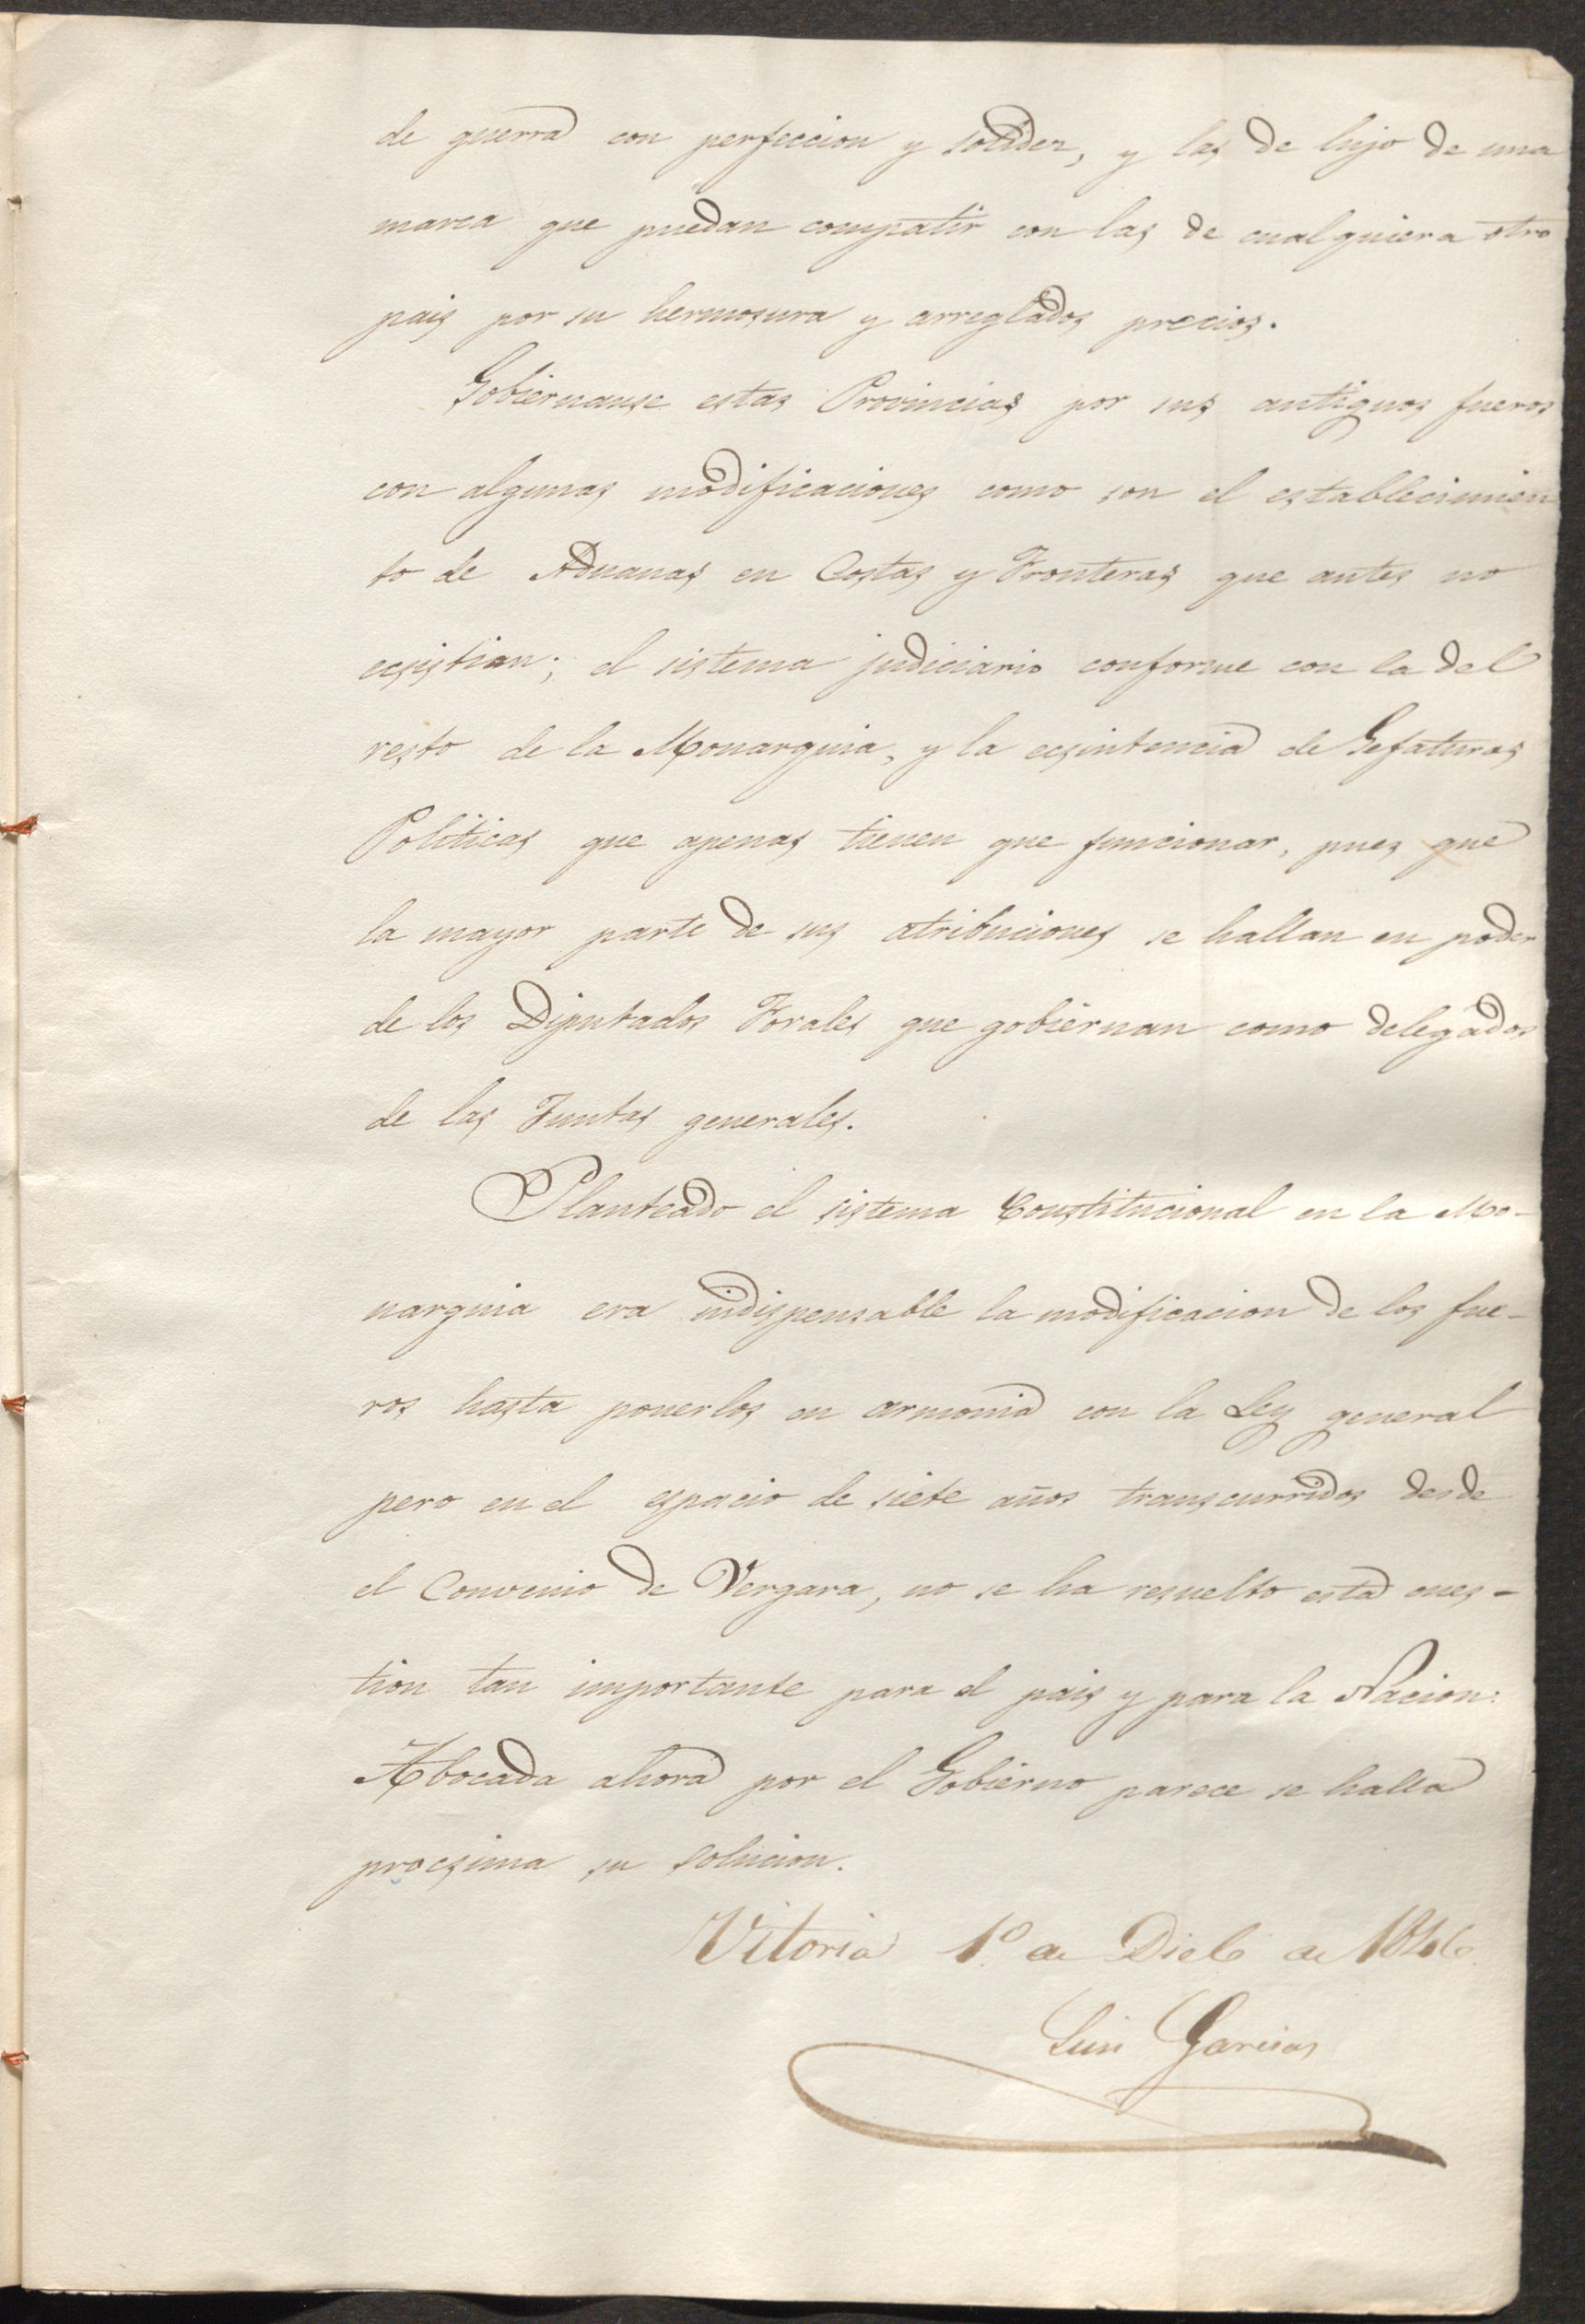 de guerra con perfeccion y solidez, y las de lujo de una
marca que puedan compatir con las de cualquiera otro
pais por su hermosura y arreglados precios.
Gobiernanse estas Provincias por sus antiguos fueros
con algunas modificaciones como son el establecimien
to de Aduanas en Costas y Fronteras que antes no
ecsistian; el sistema judiciario conforme con la del
resto de la Monarquia, y la ecsintencia de Gefaturas
Politicas que apenas tienen que funcionar, pues que
la mayor parte de sus atribuciones se hallan en poder
de los Diputados Forales que gobiernan como delegados
de las Juntas generales.
Planteado el sistema Constitucional en la Mo-
narquia era indispensable la modificacion de los fue-
ros hasta ponerlos en armonia con la Ley general
pero en el espacio de siete años transcurridos desde
el Convenio de Vergara, no se ha resuelto esta cues-
tion tan importante para el pais y para la Nacion:
Abocada ahora por el Gobierno parece se halla
procsima su solucion.
Vitoria 1º de Dicb de 1846.
Luis Garcias